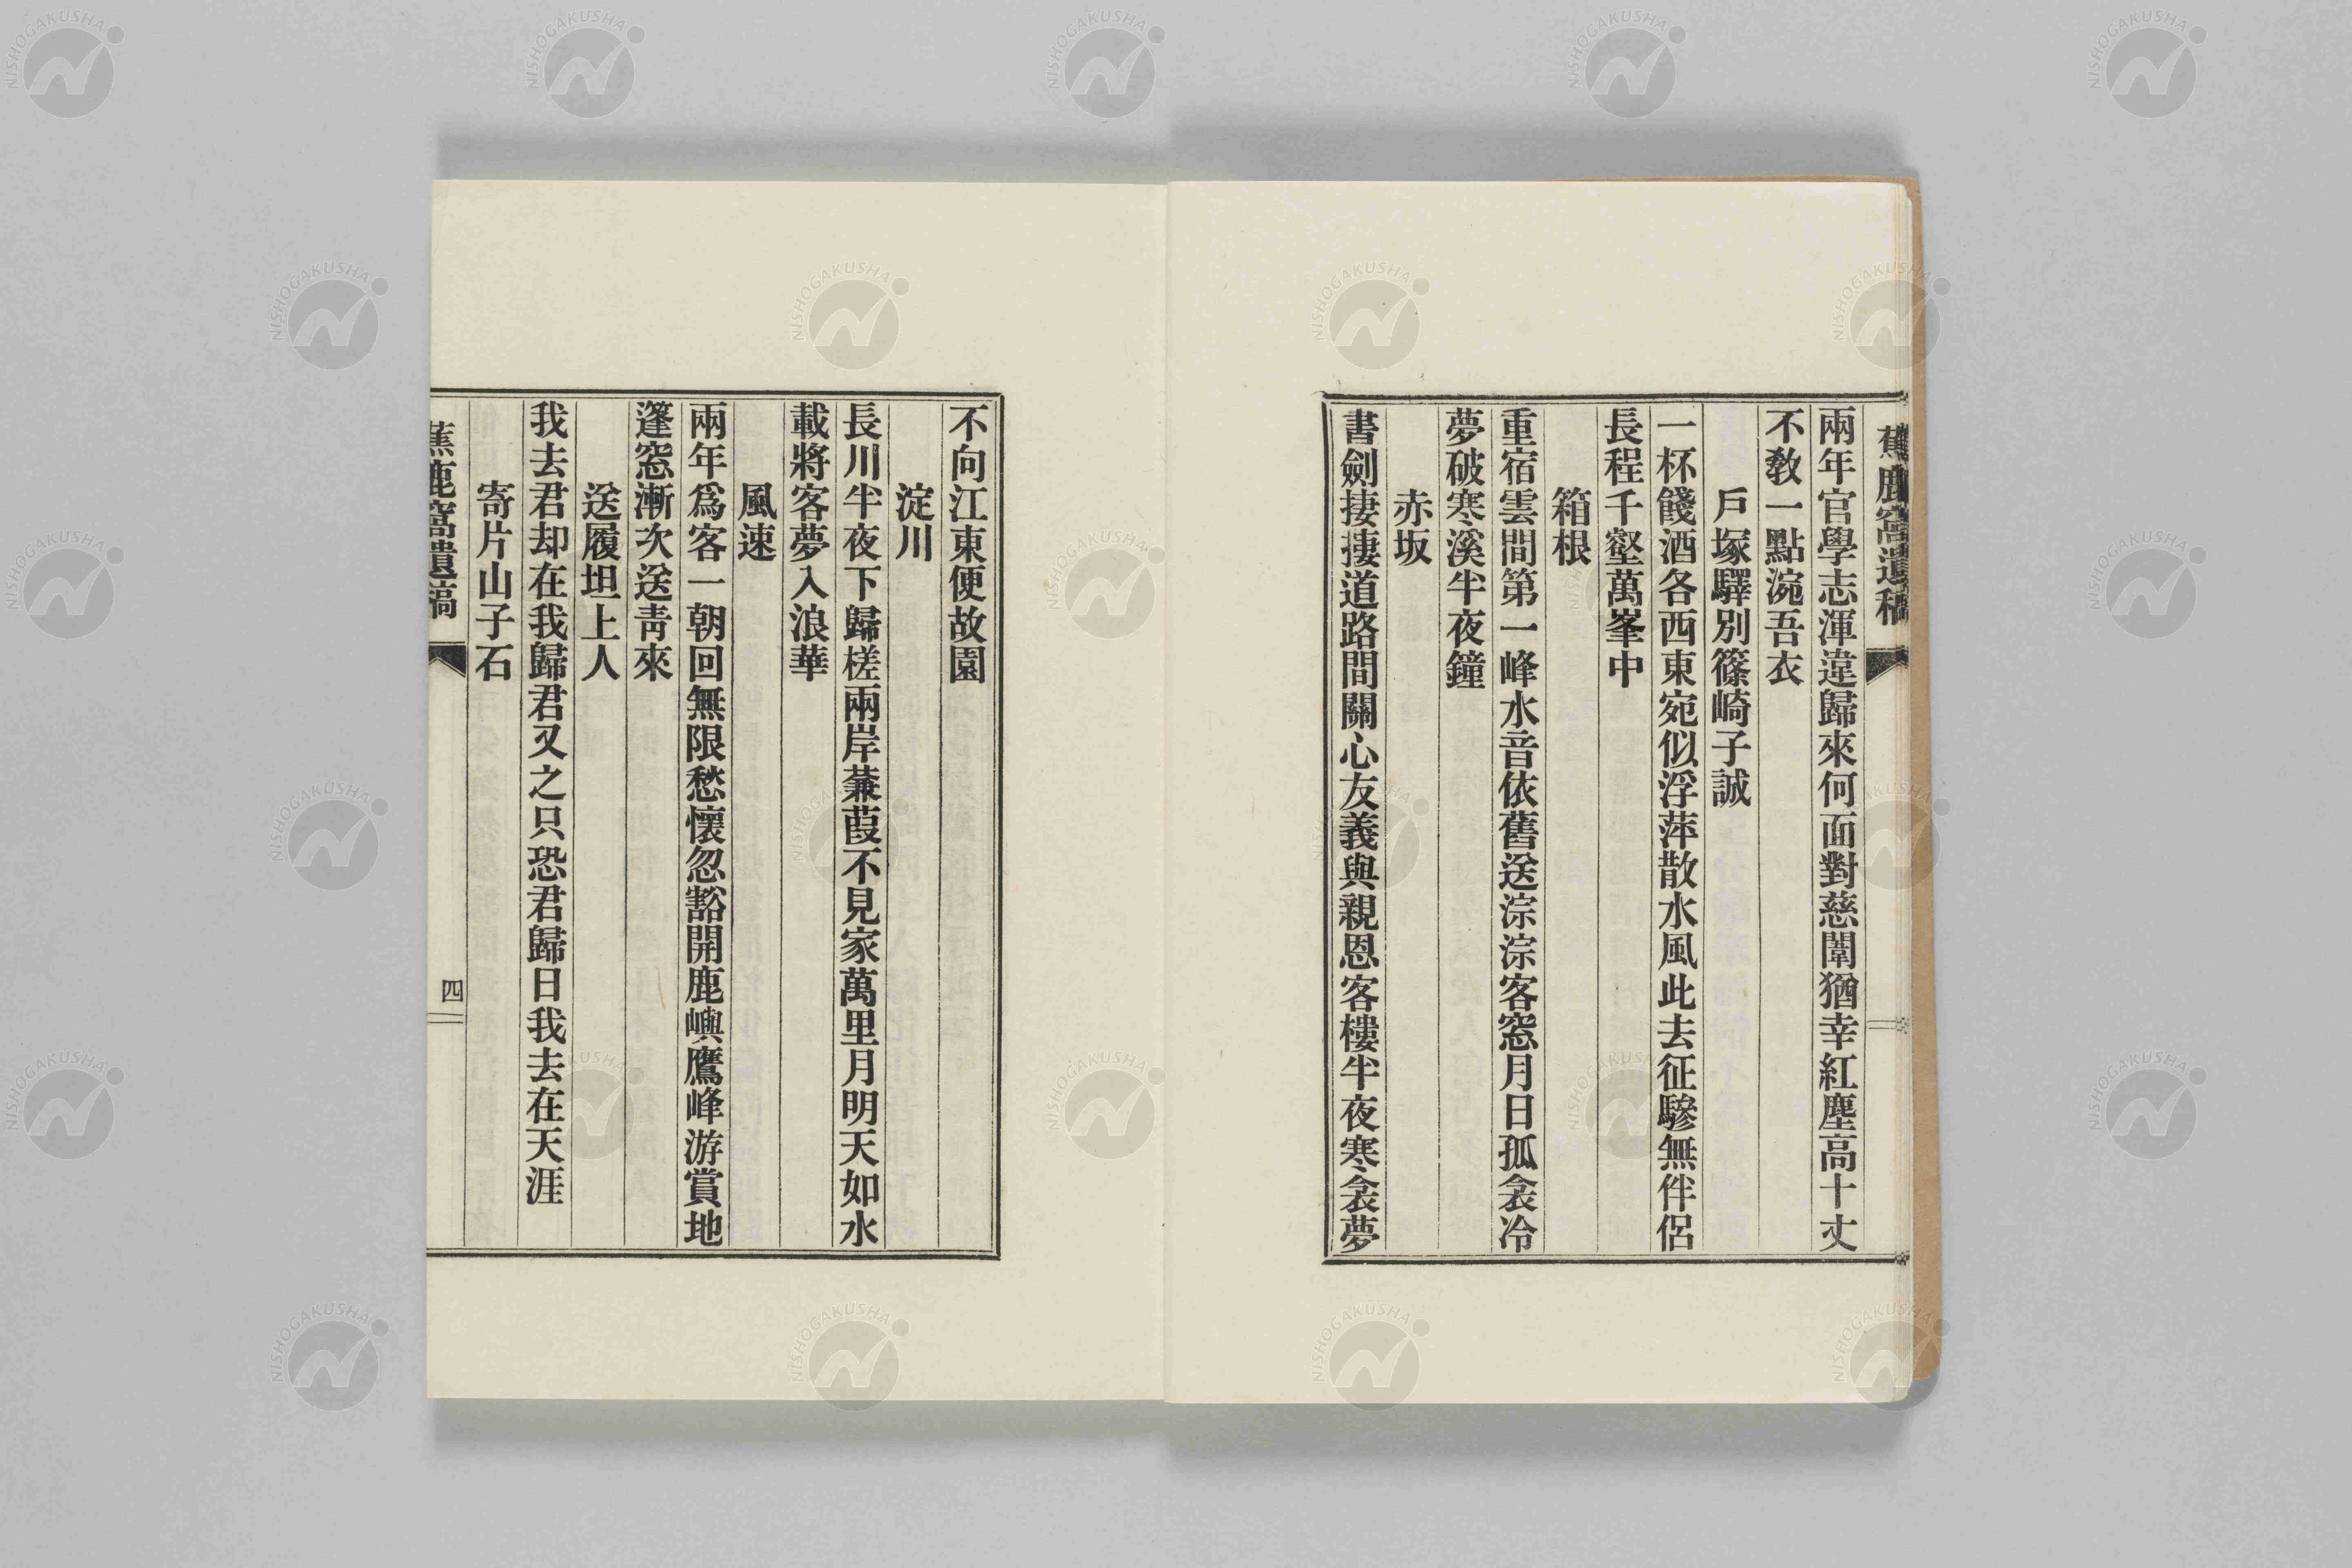 蕉鹿窩遺稿
兩年官學志渾違歸來何面對慈闈猶幸紅塵高十丈
不敎一點涴吾衣
戶塚驛別篠崎子誠
一杯餞酒各西東宛似浮萍散水風此去征驂無伴侶
長程千壑萬峯中
箱根
重宿雲間第一峰水音依舊送淙淙客窓月日孤衾冷
夢破寒溪半夜鐘
赤坂
書劍捿捿道路間關心友義與親恩客樓半夜寒衾夢
不向江東便故園
淀川
長川半夜下歸槎兩岸蒹葭不見家萬里月明天如水
載將客夢入浪華
風速
兩年爲客一朝回無限愁懷忽豁開鹿嶼鷹峰游賞地
篷窓漸次送靑來
送履坦上人
我去君却在我歸君又之只恐君歸日我去在天涯
寄片山子石
蕉鹿窩遺稿
四
NISHOGAKUSHA